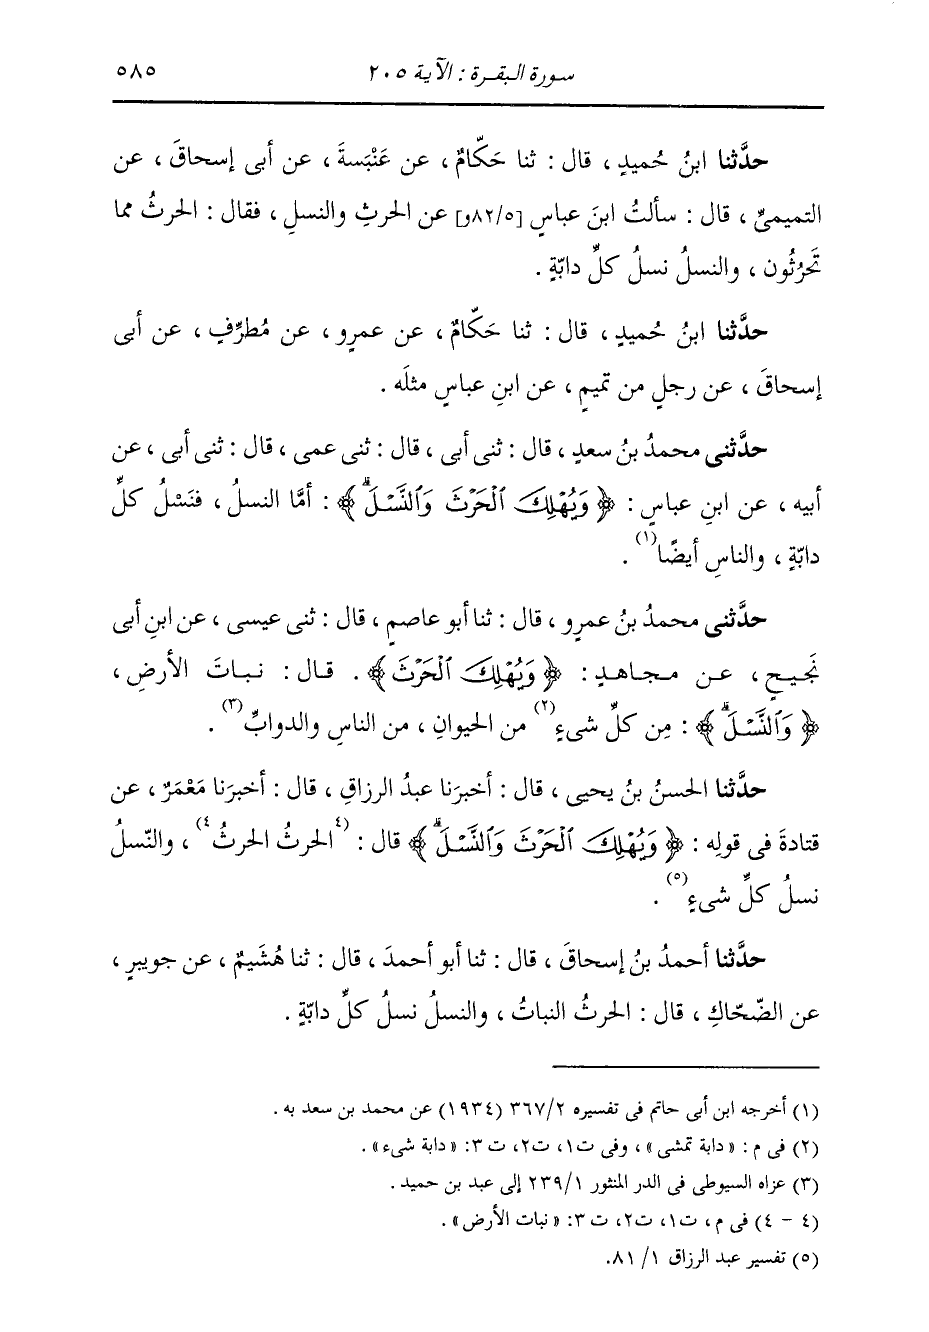 سورة البقرة : الآية ٢٠٥ ٥٨٥
حدَّثنا ابنُ حُميدٍ ، قال : ثنا حَكّامٌ ، عن عَنْبَسةَ ، عن أبى إسحاقَ ، عن
التميمىِّ ، قال : سألتُ ابنَ عباسٍ [٨٢/٥و] عن الحرثِ والنسلِ ، فقال : الحرثُ مما
تَحَرُثُون ، والنسلُ نسلُ كلِّ دابّةٍ .
حدَّثنا ابنُ حُميدٍ ، قال : ثنا حَكّامٌ ، عن عمرٍو ، عن مُطرِّفٍ ، عن أبى
إسحاقَ ، عن رجلٍ من تميمٍ ، عن ابنِ عباسٍ مثلَه .
حدَّثنى محمدُ بنُ سعدٍ ، قال : ثنى أبى ، قال : ثنى عمى ، قال : ثنى أبى ، عن
أبيه ، عن ابنِ عباسٍ : ﴿ وَيُهْلِكَ ٱلْحَرْثَ وَٱلنَّسْلَۗ ﴾ : أمَّا النسلُ ، فنَسْلُ كلِّ
دابّةٍ ، والناسِ أيضًا(١) .
حدَّثنى محمدُ بنُ عمرٍو ، قال : ثنا أبو عاصمٍ ، قال : ثنى عيسى ، عن ابنِ أبى
نَجيحٍ ، عن مجاهدٍ : ﴿ وَيُهْلِكَ ٱلْحَرْثَ ﴾ . قال : نباتَ الأرضِ ،
﴿ وَٱلنَّسْلَۗ ﴾ : مِن كلِّ شىءٍ(٢) من الحيوانِ ، من الناسِ والدوابِّ(٣) .
حدَّثنا الحسنُ بنُ يحيى ، قال : أخبرَنا عبدُ الرزاقِ ، قال : أخبرَنا مَعْمَرٌ ، عن
قتادةَ فى قولِه : ﴿ وَيُهْلِكَ ٱلْحَرْثَ وَٱلنَّسْلَۗ ﴾ قال : (٤الحرثُ الحرثُ٤) ، والنّسلُ
نسلُ كلِّ شىءٍ(٥) .
حدَّثنا أحمدُ بنُ إسحاقَ ، قال : ثنا أبو أحمدَ ، قال : ثنا هُشَيمٌ ، عن جويبرٍ ،
عن الضّحّاكِ ، قال : الحرثُ النباتُ ، والنسلُ نسلُ كلِّ دابّةٍ .
(١) أخرجه ابن أبى حاتم فى تفسيره ٣٦٧/٢ (١٩٣٤) عن محمد بن سعد به .
(٢) فى م : «دابة تمشى» ، وفى ت١، ت٢، ت٣: «دابة شىء» .
(٣) عزاه السيوطى فى الدر المنثور ٢٣٩/١ إلى عبد بن حميد .
(٤ - ٤) فى م، ت١، ت٢، ت٣: «نبات الأرض» .
(٥) تفسير عبد الرزاق ١/ ٨١.